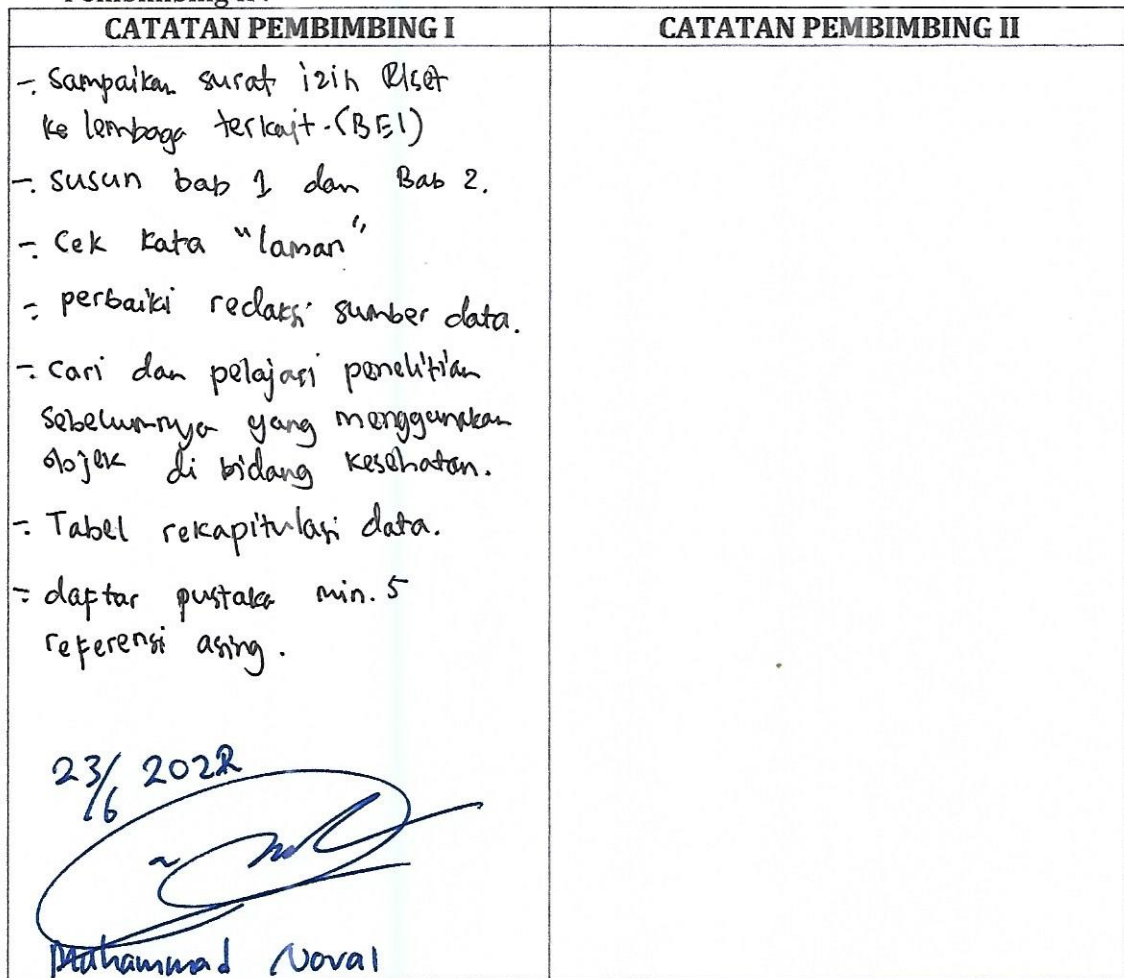 CATATAN PEMBIMBING I
CATATAN PEMBIMBING II
-. Sampaikan surat izin Riset
ke lembaga terkait. (BEI)
-. susun bab 1 dan Bab 2.
-. Cek kata "laman"
-. perbaiki redaksi sumber data.
-. Cari dan pelajari penelitian
sebelumnya yang menggunakan
objek di bidang kesehatan.
-. Tabel rekapitulasi data.
-. daftar pustaka min. 5
referensi asing.
23/6 2022
Muhammad Noval